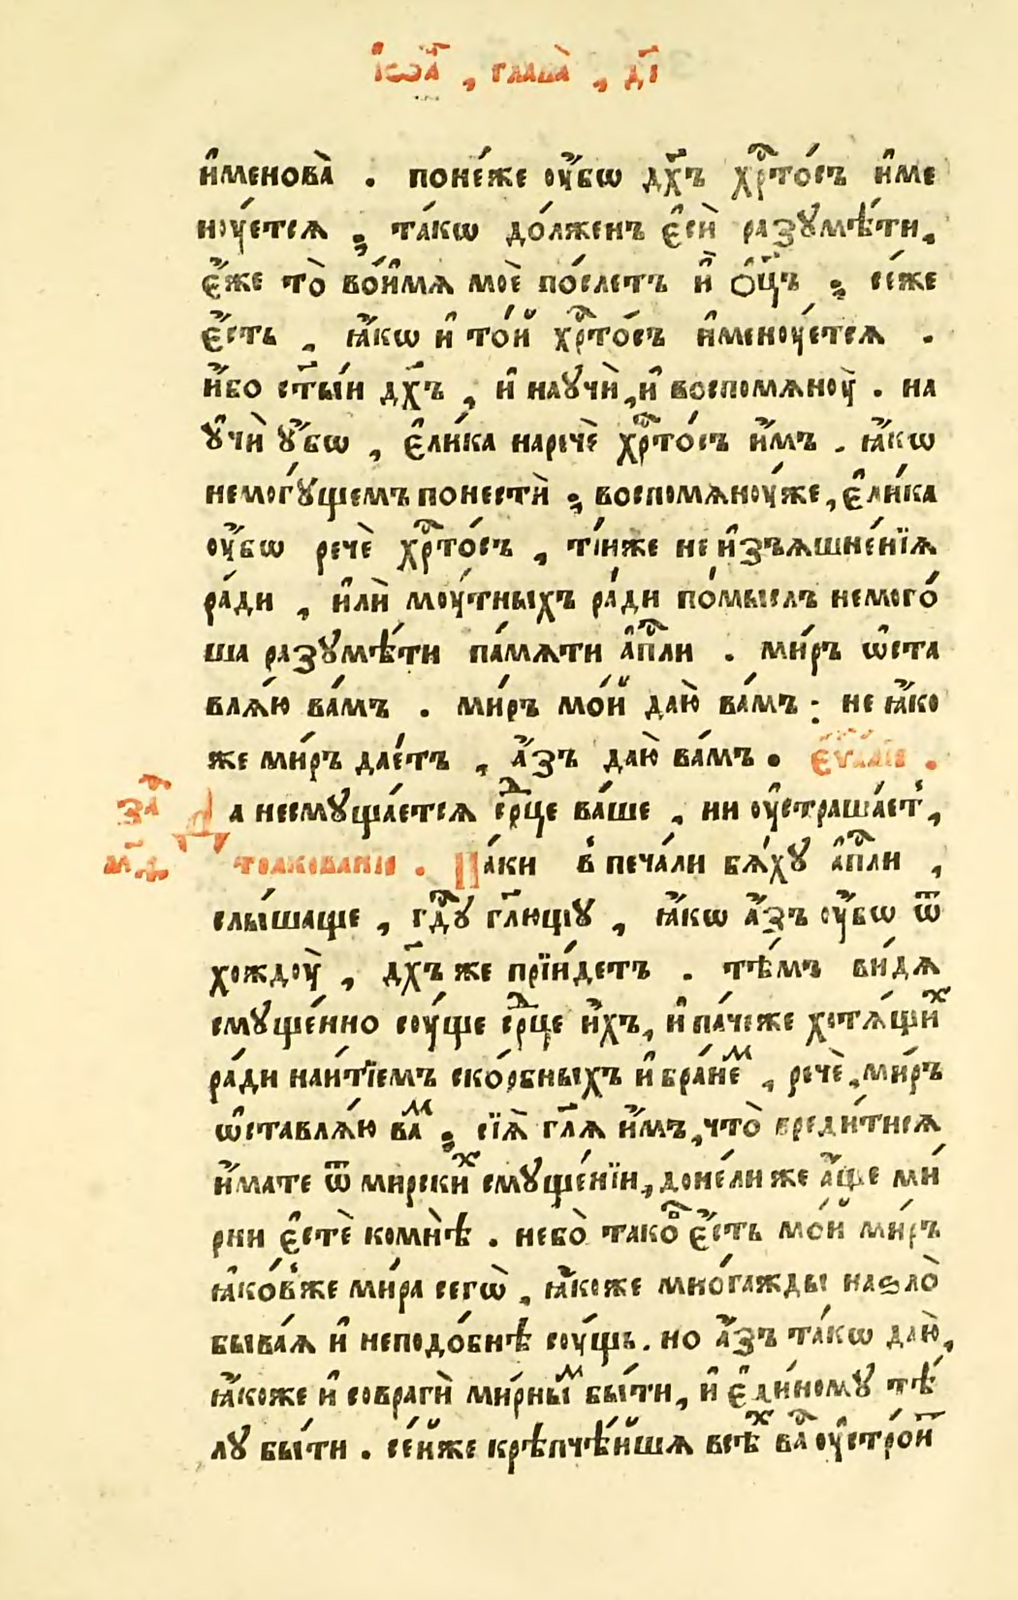 І҆ѡа҃ , глава̀ , д҃і
и҆менова̀ . поне́же ᲂу҆̀бѡ дх҃ъ хрⷭ҇то́съ и҆ме
нꙋ́етсѧ ; та́кѡ до́лженъ є҆сѝ разꙋмѣ́ти,
є҆́же то̀ во́и҆мѧ моѐ по́слетъ и҆̀ ѻ҆ц҃ъ ; се́же
є҆́сть , ꙗ҆́кѡ и҆ то́й хрⷭ҇то́съ и҆менꙋ́етсѧ .
и҆́бо ст҃ы́и дх҃ъ , и҆ наꙋчѝ, и҆ воспомѧнꙋ̀ . на
ꙋчѝ ꙋ҆́бѡ , є҆ли́ка наречѐ хрⷭ҇то́съ и҆́мъ . ꙗ҆́кѡ
немогꙋ́щемъ понестѝ ; воспомѧнꙋ́же, є҆ли́ка
ᲂу҆́бѡ речѐ хрⷭ҇то́съ , ті́иже не и҆зъѧщне́нїѧ
ра́ди , и҆лѝ мꙋ́тныхъ ра́ди по́мыслъ немого́
ша разꙋмѣ́ти па́мѧти а҆пⷭ҇ли . ми́ръ ѡ҆ста
влѧ́ю ва́мъ . ми́ръ мо́й даю̀ ва́мъ : не ꙗ҆́ко
же ми́ръ дае́тъ , а҆́зъ даю̀ ва́мъ . є҆ѵⷢ҇лїе .
за҃ Да несмꙋща́етсѧ срⷣце ва́ше , ни ᲂу҆страша́етъ,
толкованїе . Па́ки в̾ печа́ли бѧ́хꙋ а҆пⷭ҇ли ,
слы́шаще , гдⷭ҇ꙋ гл҃ющꙋ , ꙗ҆́кѡ а҆́зъ ᲂу҆́бѡ ѿ
хождꙋ̀ , дх҃ъ же прїи́детъ . тѣ́мъ ви́дѧ
смꙋще́нно сꙋ́ще срⷣце и҆́хъ, и҆ па́чеже хотѧ́щиⷯ
ра́ди наи́тїемъ ско́рбныхъ и҆ бра́неⷨ , речѐ, ми́ръ
ѡ҆ставлѧ́ю ваⷨ ; сїѧ̀ гл҃ѧ и҆́мъ, что̀ вреди́тисѧ
и҆́мате ѿ мирскиⷯ смꙋще́нїи, доне́лиже а҆́ще ми́
рни є҆стѐ комнѣ̀ . небо̀ тако́въ є҆́сть мо́й ми́ръ
ꙗ҆ко́в̾же ми́ра сегѡ̀ , ꙗ҆́коже мно́гажды наѕло̀
быва́ѧ и҆ неподо́бнѣ сꙋ́щь . но а҆́зъ та́кѡ даю̀,
ꙗ҆́коже и҆ совраги̑ ми́рныⷨ бы́ти, и҆ є҆ди́номꙋ тѣ́
лꙋ бы́ти . се́йже крѣпчѣ́йшѧ всѣⷯ ва́съ ᲂу҆стро́и